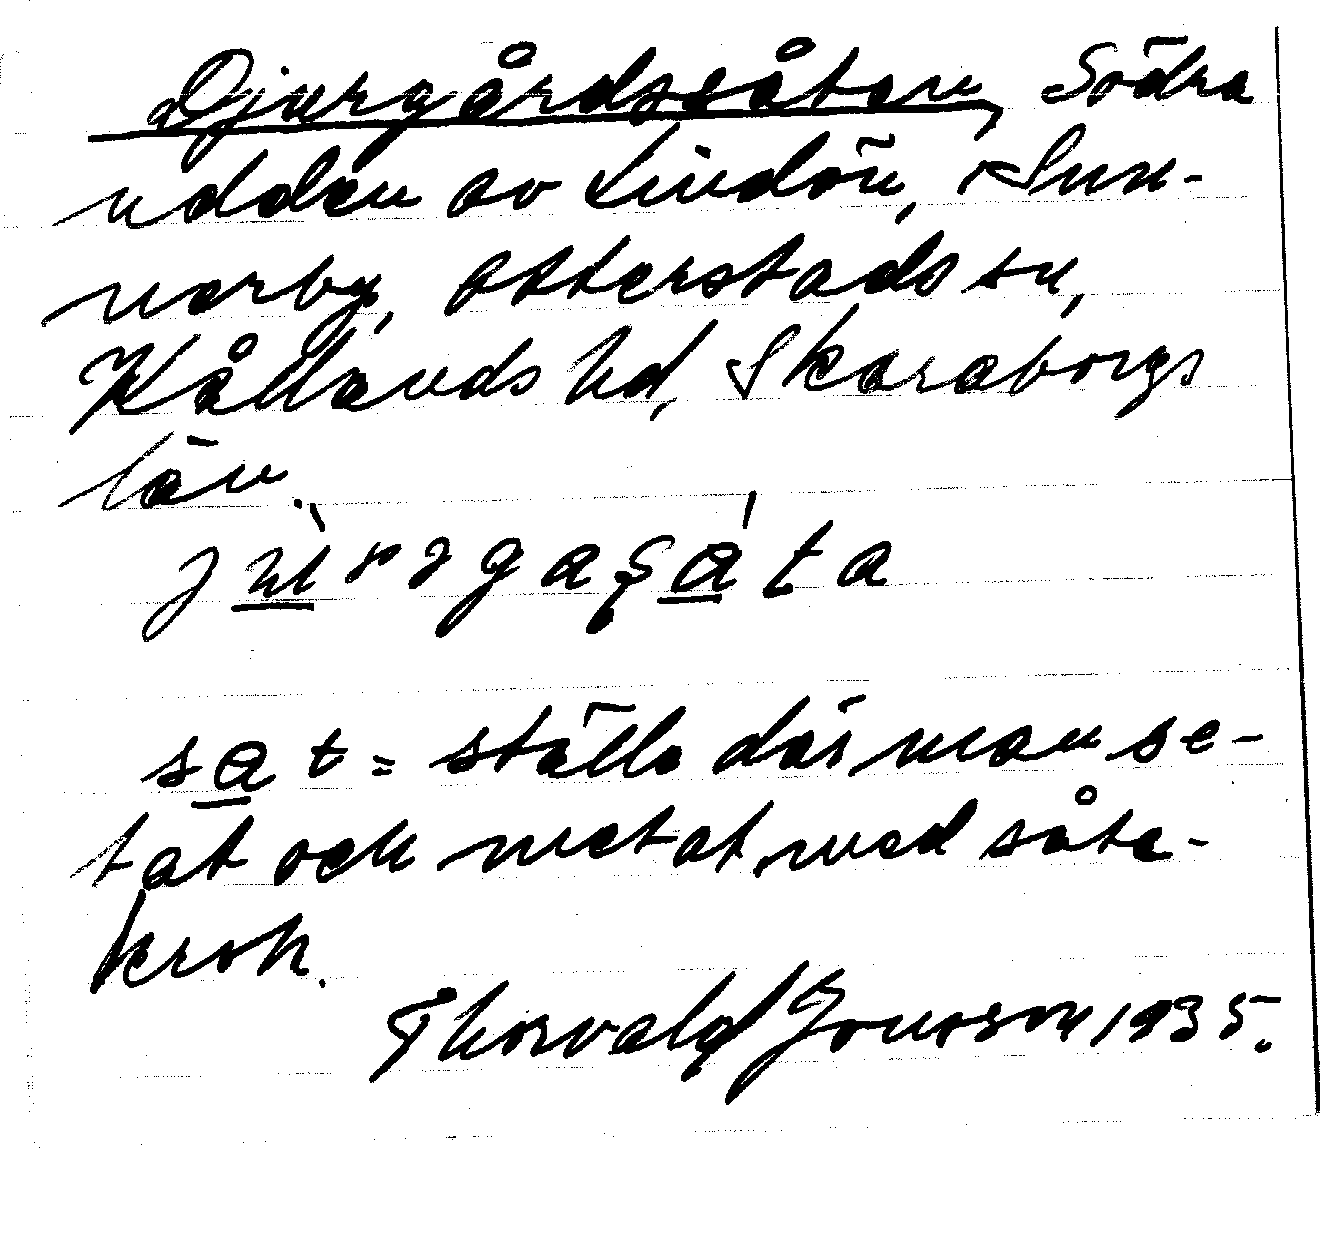 Djurgårdssåten, Södra
udden av Lindön, Sun-
nerby, Otterstads sn,
Kållands hd, Skaraborgs
län.
sat = ställe där man se-
tat och metat med såte-
krok.
Thorvald Jonsson 1935.